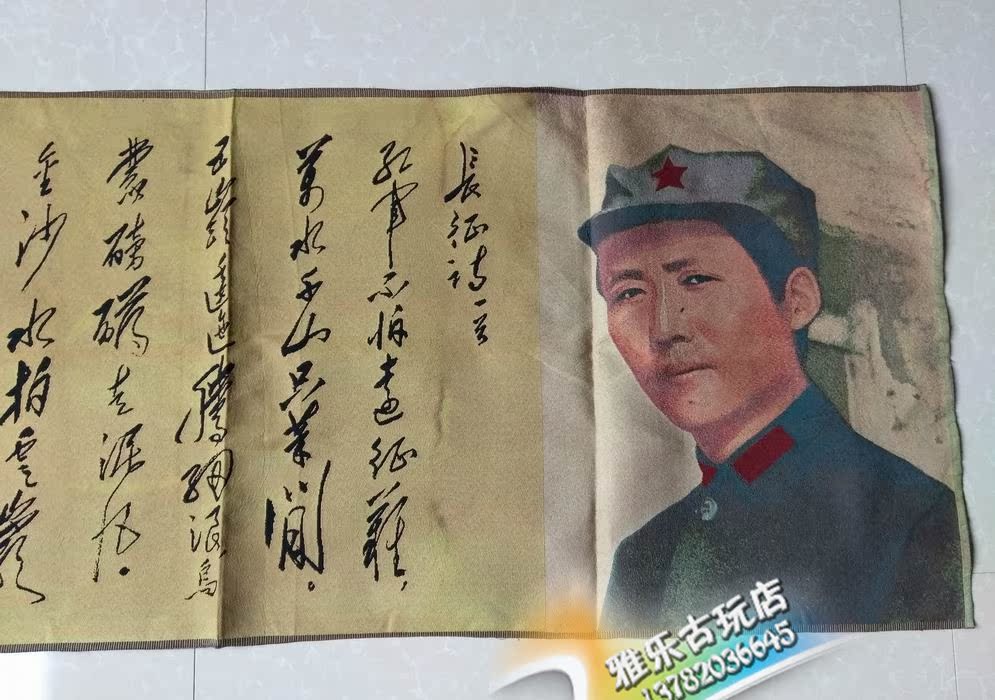 長征詩一首
紅軍不怕遠征難，
萬水千山只等閒。
五嶺逶迤騰細浪烏
蒙磅礴走泥丸。
金沙水拍雲
雅乐古玩店
13782036645